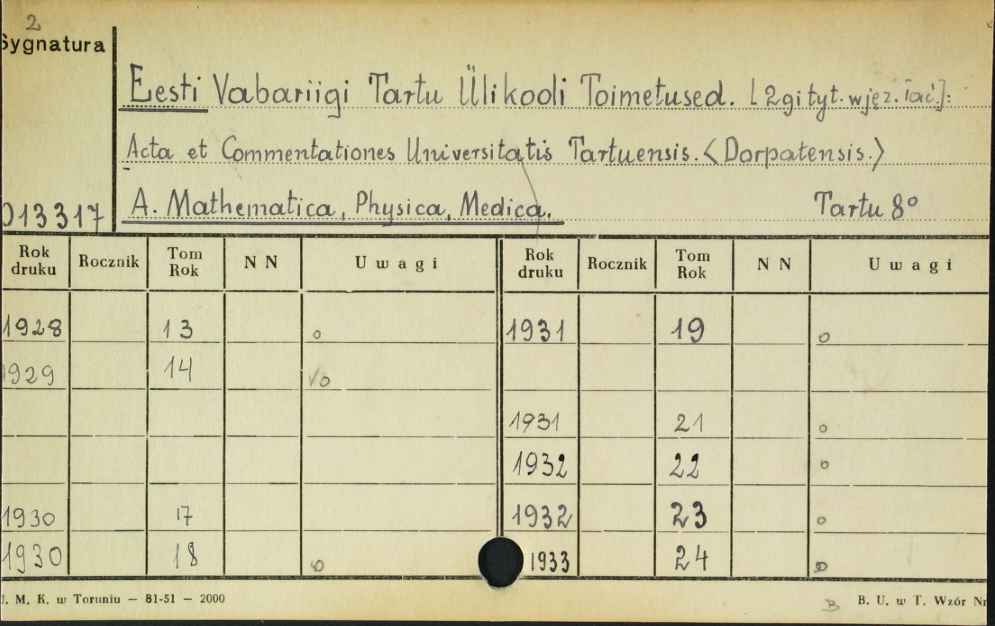 2
Sygnatura
Eesti Vabariigi Tartu Ülikooli Toimetused. [2gi tyt. w jęz. łac.]:
Acta et Commentationes Universitatis Tartuensis. <Dorpatensis.>
013317 A. Mathematica, Physica, Medica. Tartu 8°
Rok druku Rocznik Tom Rok NN Uwagi Rok druku Rocznik Tom Rok NN Uwagi
1928 13 o 1931 19 o
1929 14 √o
1931 21 o
1932 22 o
1930 17 1932 23 o
1930 18 o 1933 24 o
J. M. K. w Toruniu — 81-51 — 2000 B B. U. w T. Wzór Nr